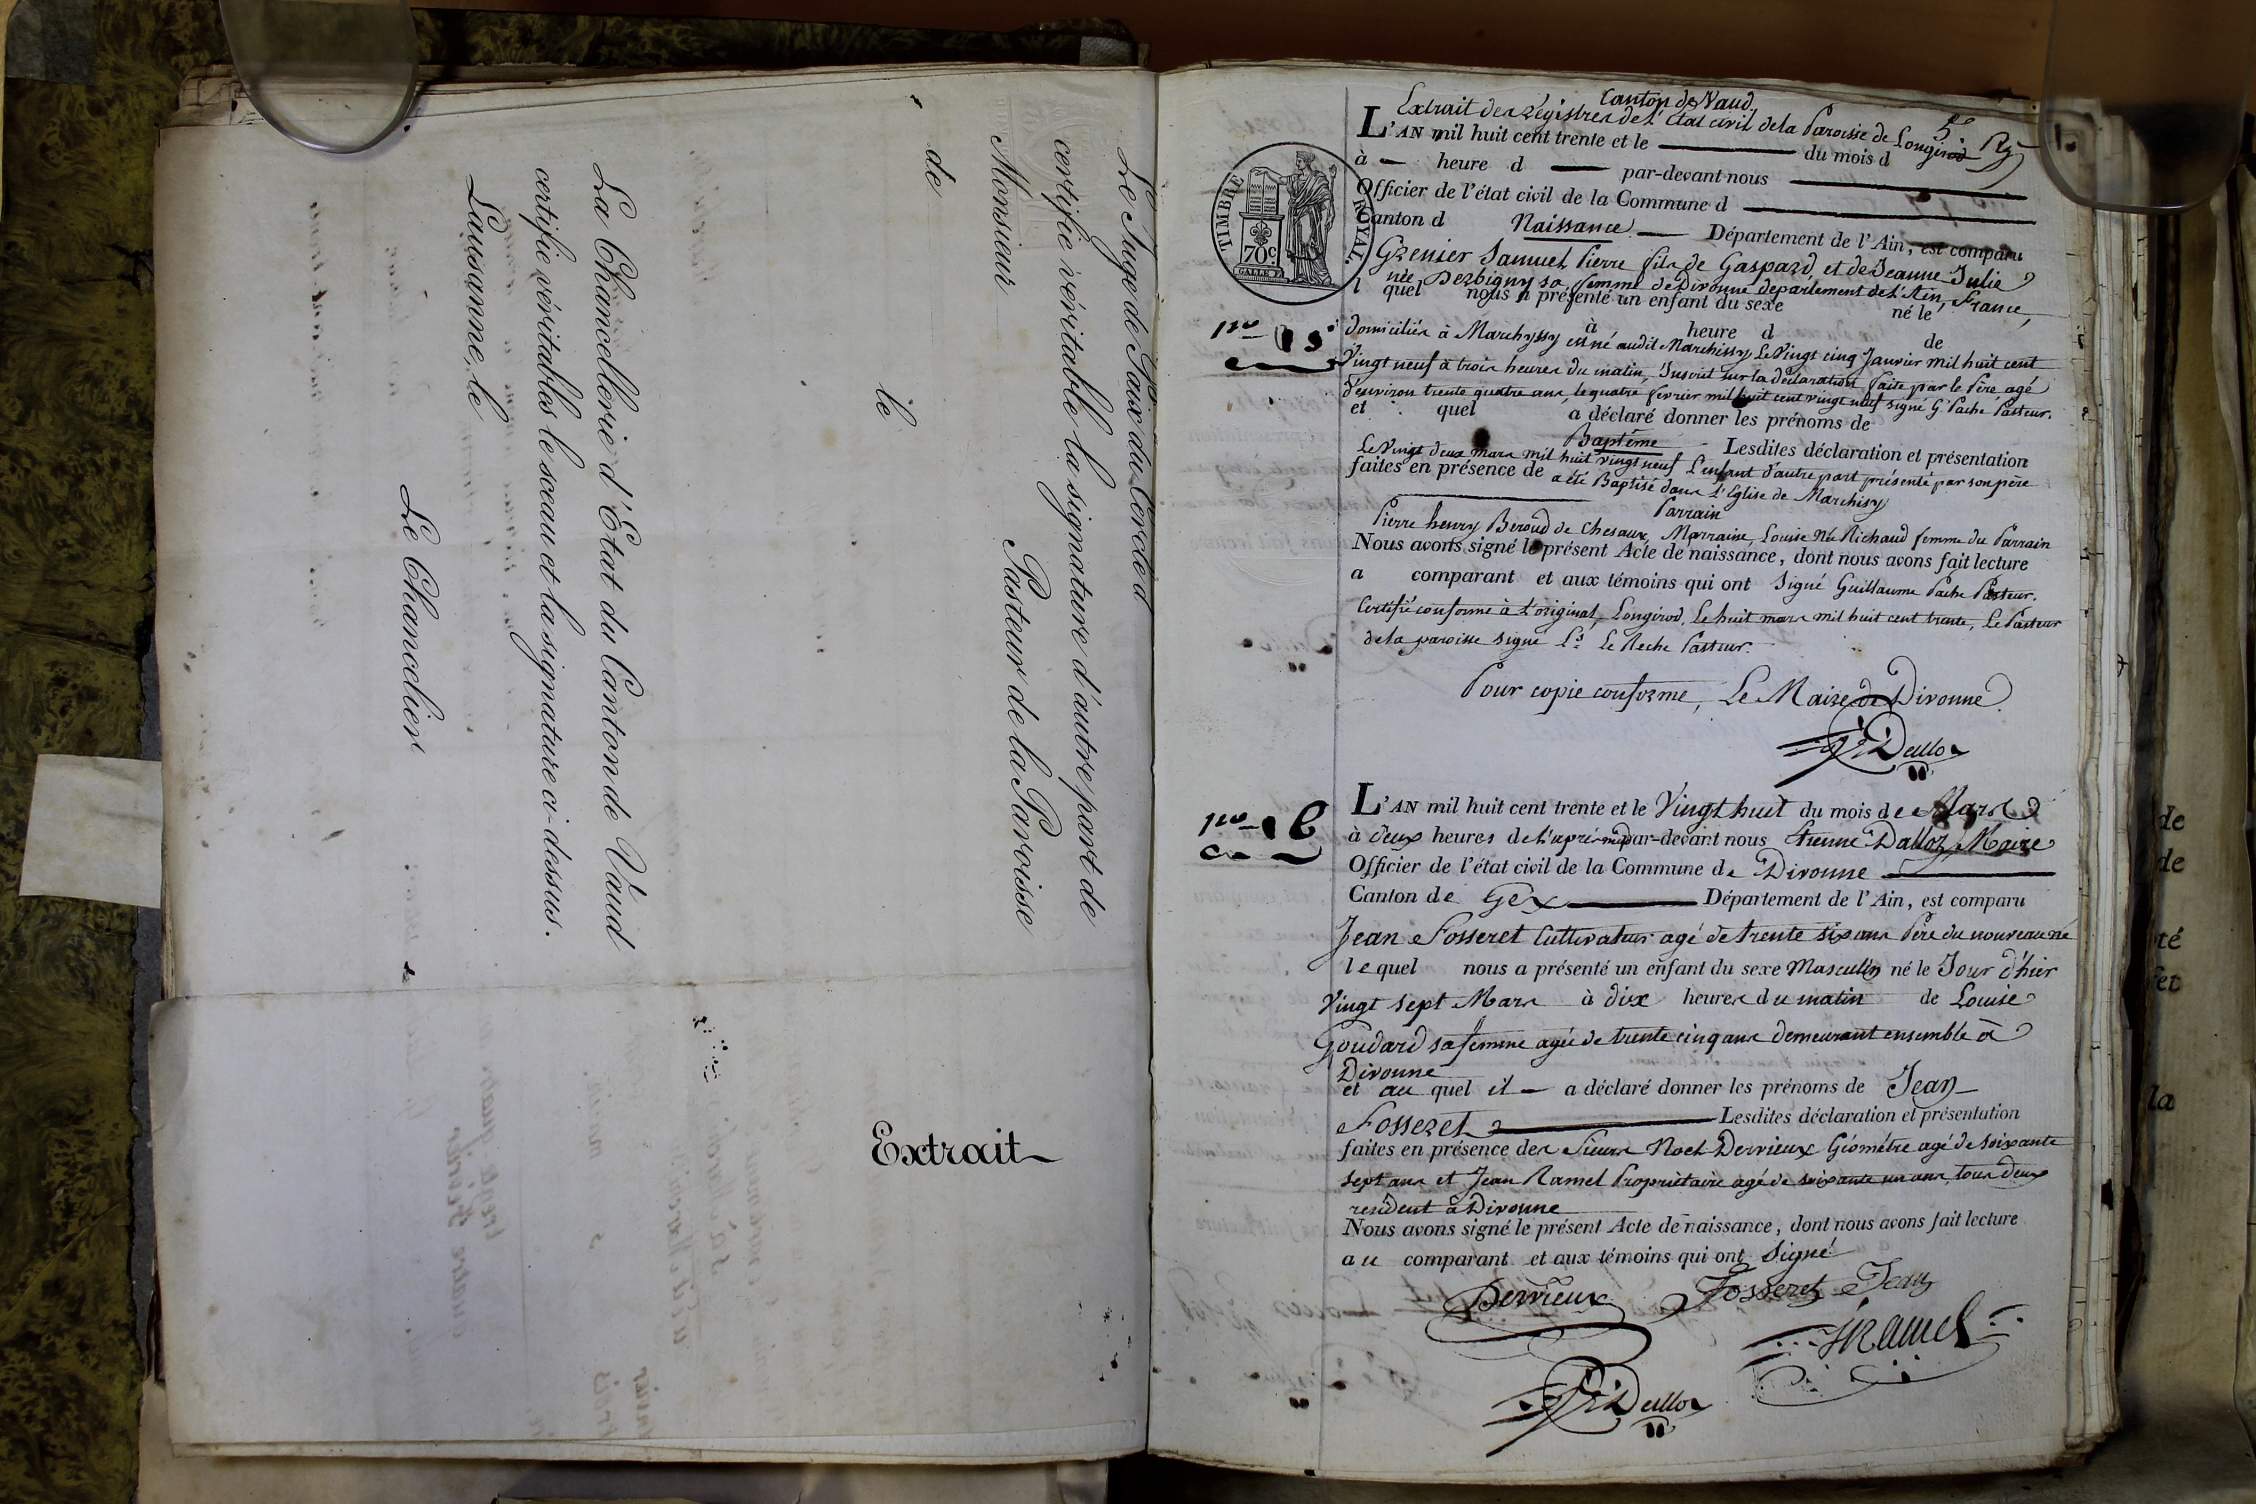 Le Juge de Paix du Cercle d
certifie véritable la signature d'autre part de
Monsieur Pasteur de la Paroisse
de
le
La Chancellerie d'Etat du Canton de Vaud
certifie véritables le sceau et la signature ci-dessus.
Lausanne, le
Le Chancelier
Extrait
Canton de Vaud.
Extrait des Régistres de l'état civil de la Paroisse de Longirod
L'AN mil huit cent trente et le du mois d
à heure d par-devant nous
Officier de l'état civil de la Commune d
Canton d Naissance Département de l'Ain, est comparu
TIMBRE ROYAL.
70c
Grenier Samuel Pierre fils de Gaspard, et de Jeanne Julie
née Derbigny sa femme de Divonne département de l'Ain, France,
l quel nous a présenté un enfant du sexe né le
à heure d de
domiciliés à Marchyssy est né audit Marchissy Le Vingt cinq Janvier mil huit cent
no 15
Vingt neuf à trois heures du matin, Inscrit sur la déclaration faite par le Père, agé
d'environ trente quatre ans, le quatre février mil huit cent vingt neuf signé G. Pache Pasteur.
et quel a déclaré donner les prénoms de
Baptême Lesdites déclaration et présentation
Le Vingt deux mars mil huit vingt neuf L'enfant d'autre part présenté par son père
faites en présence de a été Baptisé dans l'Eglise de Marchisy
Parrain
Pierre henry Beroud de Chesaux, Marraine, Louise Née Richaud femme du Parrain
Nous avons signé le présent Acte de naissance, dont nous avons fait lecture
a comparant et aux témoins qui ont Signé Guillaume Pache Pasteur.
Certifié conforme à l'original, Longirod, Le huit mars mil huit cent trente, Le Pasteur
de la paroisse signé Ls Le Reche Pasteur.
Pour copie conforme, Le Maire de Divonne
Dalloz
no 16
L'AN mil huit cent trente et le Vingt huit du mois de Mars
à deux heures de l'après midi par-devant nous Etienne Dalloz, Maire
Officier de l'état civil de la Commune de Divonne
Canton de Gex Département de l'Ain, est comparu
Jean Fosseret Cultivateur agé de trente six ans Père du nouveau né
lequel nous a présenté un enfant du sexe Masculin né le Jour d'hier
Vingt sept Mars à dix heures du matin de Louise
Goudard sa femme agée de trente cinq ans demeurant ensemble à
Divonne
et au quel il a déclaré donner les prénoms de Jean
Fosseret Lesdites déclaration et présentation
faites en présence des Sieurs Noel Dervieux Géométre agé de soixante
sept ans et Jean Ramel Propriétaire agé de soixante un ans, tous deux
résident à Divonne
Nous avons signé le présent Acte de naissance, dont nous avons fait lecture
au comparant et aux témoins qui ont Signé
Dervieux Fosseret Jean
Ramel
Dalloz